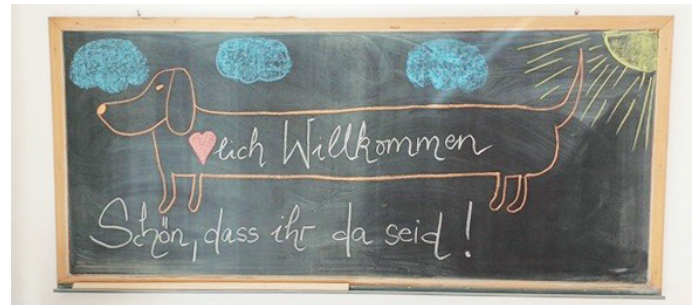 ♥lich Willkommen
Schön, dass ihr da seid!